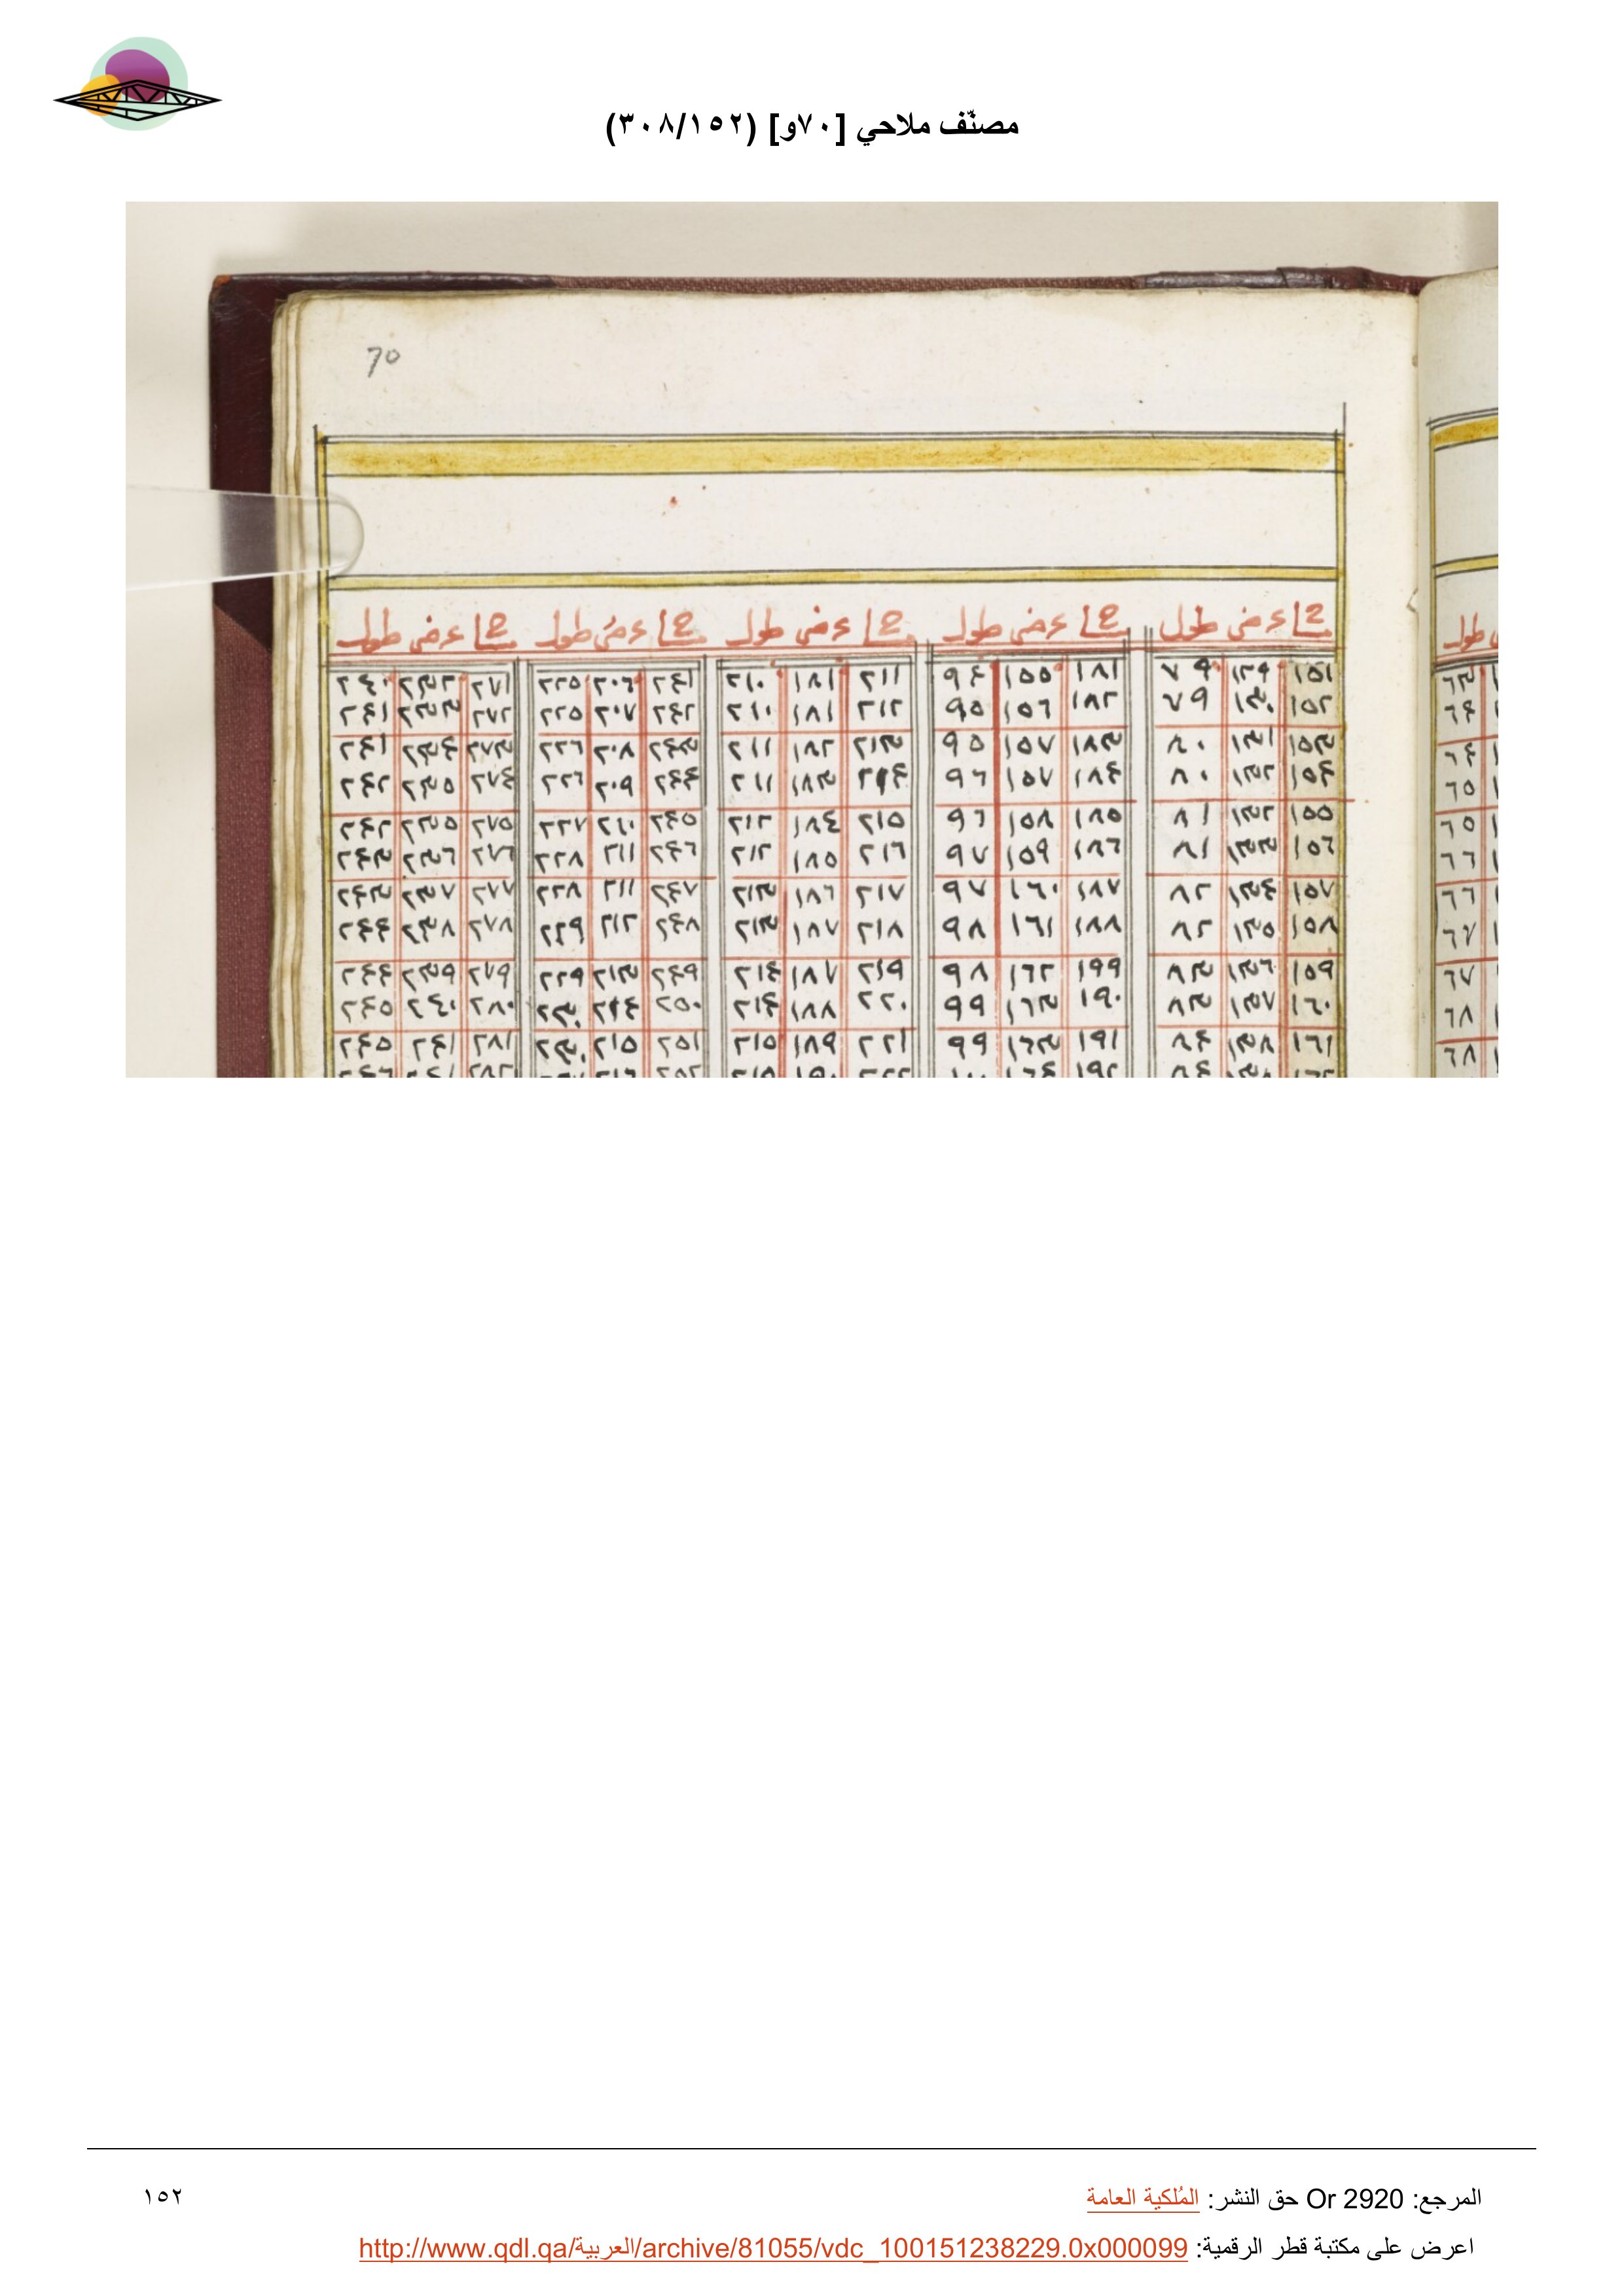 مصنّف ملاحي [٧٠و] (٣٠٨/١٥٢)
70
مسا عرض طول مسا عرض طول مسا عرض طول مسا عرض طول مسا عرض طول
١٥١ ١٢٩ ٧٩ ١٨١ ١٥٥ ٩٤ ٢١١ ١٨١ ٢١٠ ٢٤١ ٢٠٦ ٢٢٥ ٢٧١ ٢٣٢ ٢٤٠
١٥٢ ١٣٠ ٧٩ ١٨٢ ١٥٦ ٩٥ ٢١٢ ١٨١ ٢١٠ ٢٤٢ ٢٠٧ ٢٢٥ ٢٧٢ ٢٣٣ ٢٤١
١٥٣ ١٣١ ٨٠ ١٨٣ ١٥٧ ٩٥ ٢١٣ ١٨٢ ٢١١ ٢٤٣ ٢٠٨ ٢٢٦ ٢٧٣ ٢٣٤ ٢٤١
١٥٤ ١٣٢ ٨٠ ١٨٤ ١٥٧ ٩٦ ٢١٤ ١٨٣ ٢١١ ٢٤٤ ٢٠٩ ٢٢٦ ٢٧٤ ٢٣٥ ٢٤٢
١٥٥ ١٣٢ ٨١ ١٨٥ ١٥٨ ٩٦ ٢١٥ ١٨٤ ٢١٢ ٢٤٥ ٢١٠ ٢٢٧ ٢٧٥ ٢٣٥ ٢٤٢
١٥٦ ١٣٣ ٨١ ١٨٦ ١٥٩ ٩٧ ٢١٦ ١٨٥ ٢١٢ ٢٤٦ ٢١١ ٢٢٨ ٢٧٦ ٢٣٦ ٢٤٣
١٥٧ ١٣٤ ٨٢ ١٨٧ ١٦٠ ٩٧ ٢١٧ ١٨٦ ٢١٣ ٢٤٧ ٢١١ ٢٢٨ ٢٧٧ ٢٣٧ ٢٤٣
١٥٨ ١٣٥ ٨٢ ١٨٨ ١٦١ ٩٨ ٢١٨ ١٨٧ ٢١٣ ٢٤٨ ٢١٢ ٢٢٩ ٢٧٨ ٢٣٨ ٢٤٤
١٥٩ ١٣٦ ٨٣ ١٩٩ ١٦٢ ٩٨ ٢١٩ ١٨٧ ٢١٤ ٢٤٩ ٢١٣ ٢٢٩ ٢٧٩ ٢٣٩ ٢٤٤
١٦٠ ١٣٧ ٨٣ ١٩٠ ١٦٣ ٩٩ ٢٢٠ ١٨٨ ٢١٤ ٢٥٠ ٢١٤ ٢٣٠ ٢٨٠ ٢٤٠ ٢٤٥
١٦١ ١٣٨ ٨٤ ١٩١ ١٦٣ ٩٩ ٢٢١ ١٨٩ ٢١٥ ٢٥١ ٢١٥ ٢٣٠ ٢٨١ ٢٤١ ٢٤٥
طول
٦٣
٦٤
٦٤
٦٥
٦٥
٦٦
٦٦
٦٧
٦٧
٦٨
٦٨
المرجع: Or 2920 حق النشر: المُلكية العامة
١٥٢
اعرض على مكتبة قطر الرقمية: http://www.qdl.qa/العربية/archive/81055/vdc_100151238229.0x000099